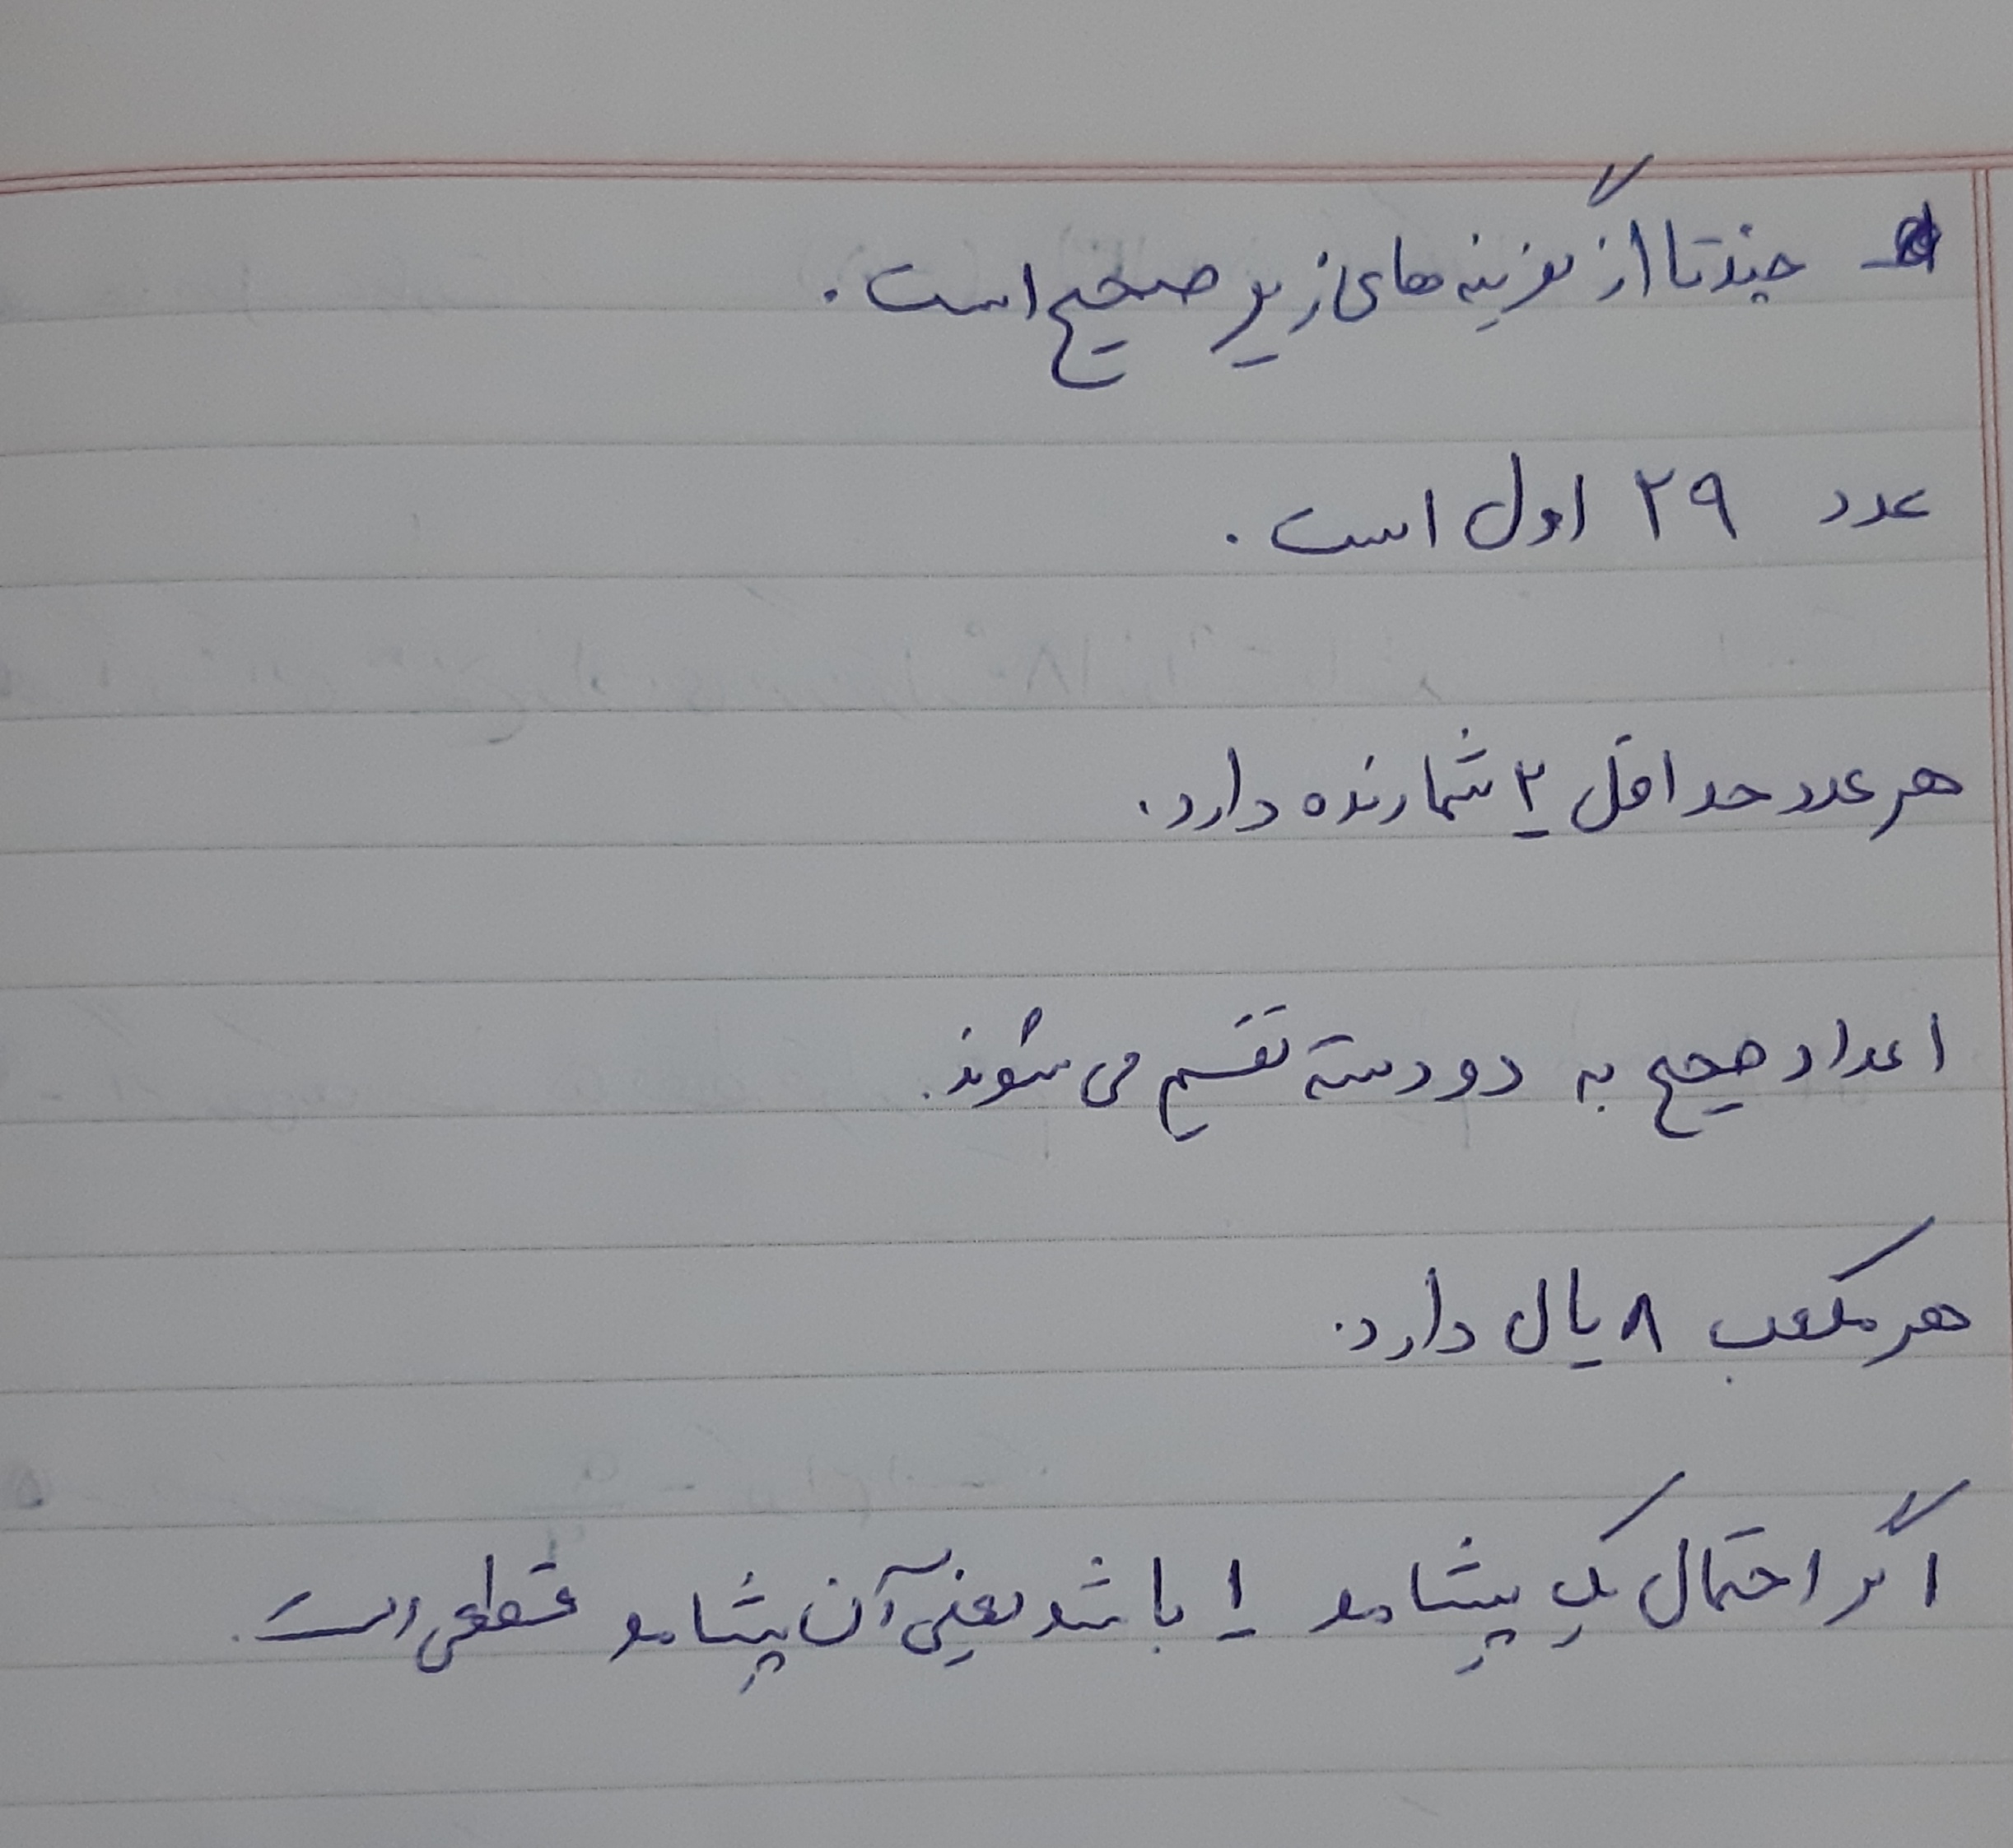 - چندتا از گزینه های زیر صحیح است.
عدد ۲۹ اول است.
هر عدد حداقل ۲ شمارنده دارد.
اعداد صحیح به دو دسته تقسیم می شوند.
هر مکعب ۸ یال دارد.
اگر احتمال یک پیشامد ۱ باشد یعنی آن پیشامد قطعی است.